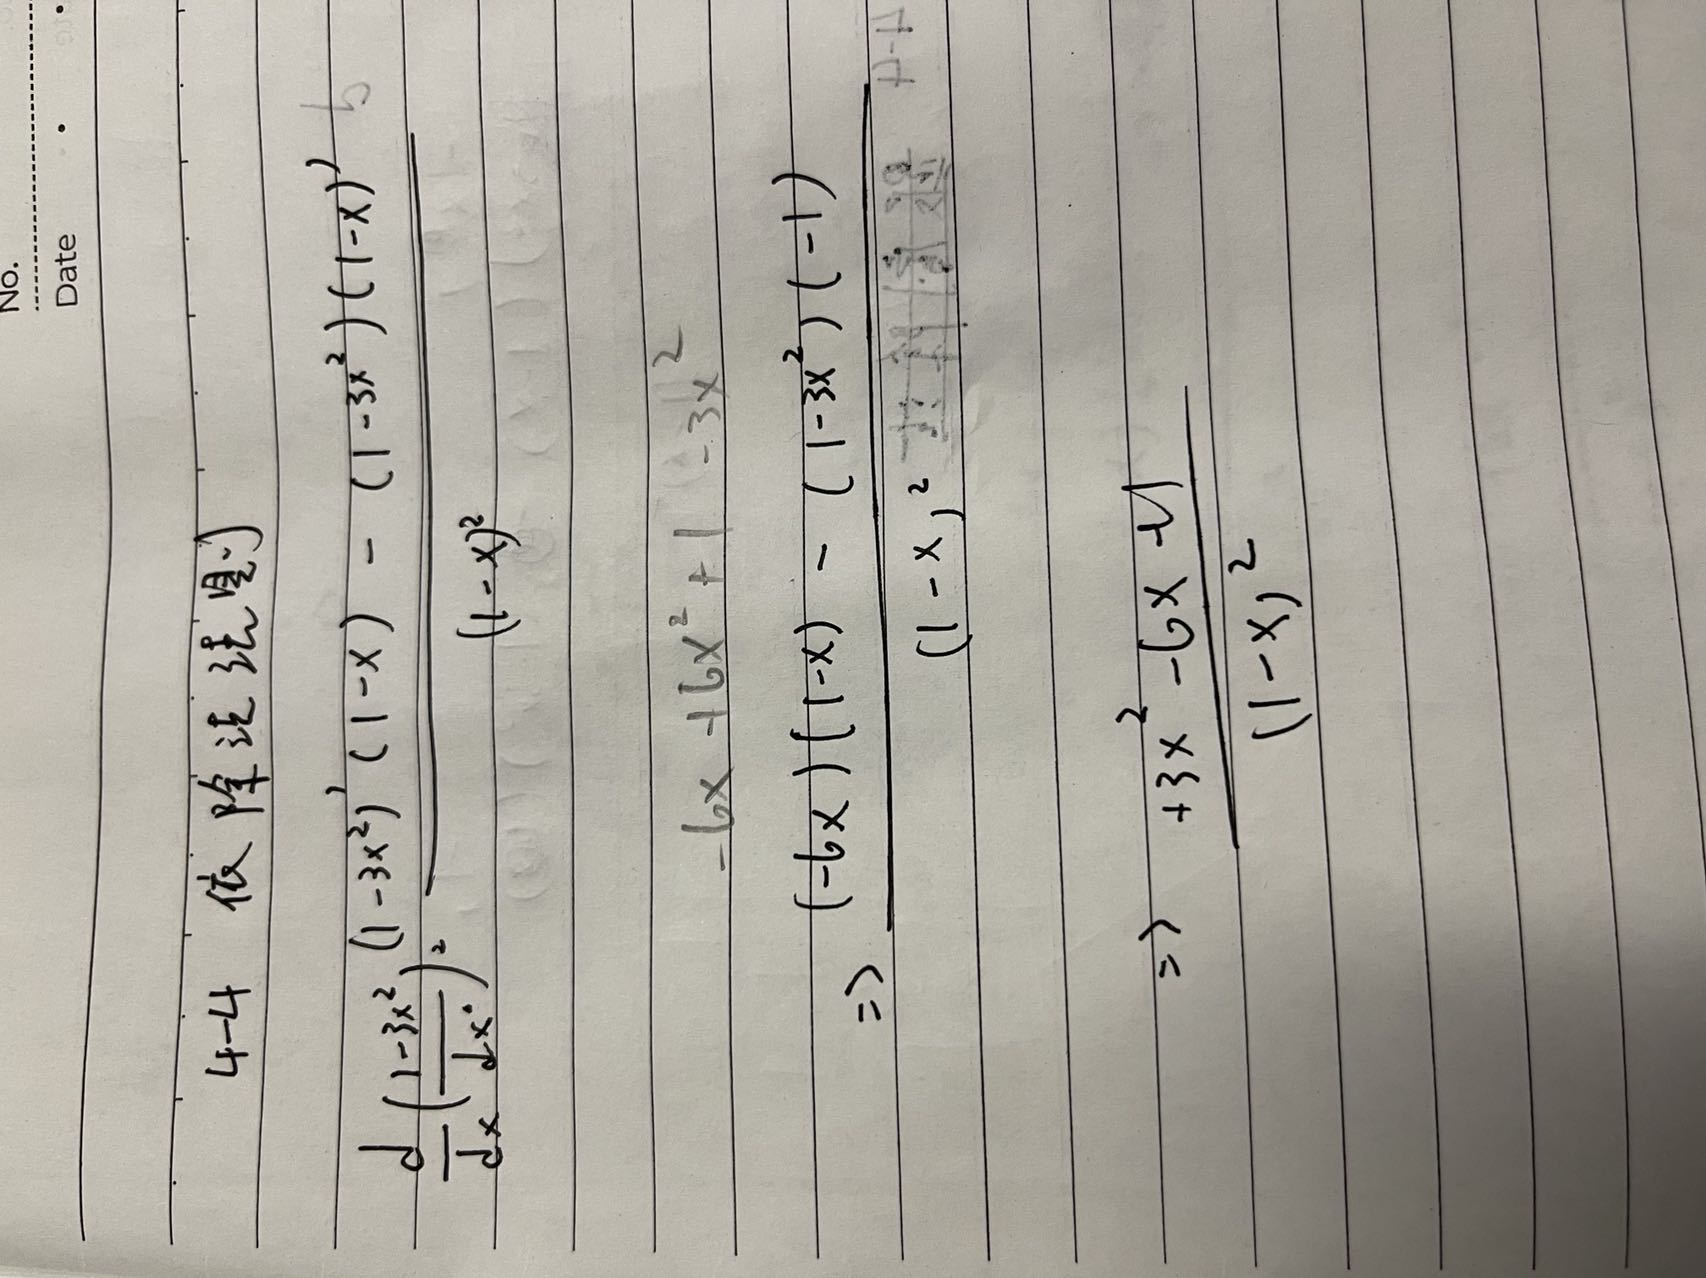 No.
Date
4-4 依除法法則
d/dx (1-3x²/dx) = (1-3x²)'(1-x) - (1-3x²)(1-x)' / (1-x)²
-6x +6x² +1 -3x²
=> (-6x)(1-x) - (1-3x²)(-1) / (1-x)²
=> +3x² -6x +1 / (1-x)²